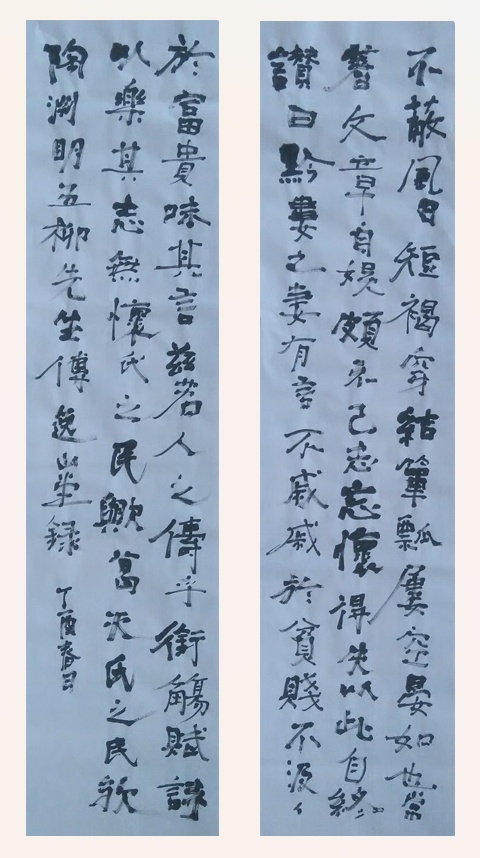 不蔽風日短褐穿結簞瓢屢空晏如也常
著文章自娛頗示己志忘懷得失以此自終
讚曰黔婁之妻有言不戚戚於貧賤不汲々
於富貴味其言茲若人之儔乎銜觴賦詩
以樂其志無懷氏之民歟葛天氏之民歟
陶淵明五柳先生傳逸山堂録 丁酉春日